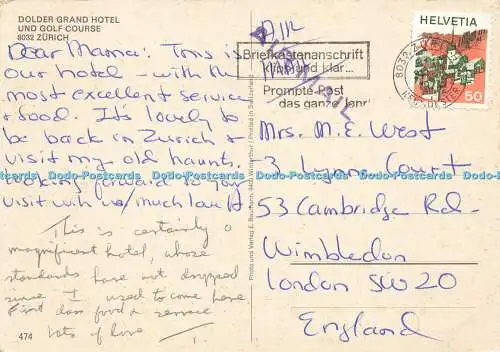 DOLDER GRAND HOTEL
UND GOLF COURSE
8032 ZÜRICH
Dear Mama: This is
our hotel - with the
most excellent service
& food. It's lovely to
be back in Zurich &
visit my old haunts.
looking forward to your
visit with us/much love
This is certainly a
magnificent hotel, whose
standards have not dropped
since I used to come here.
First class food & service
lots of love
474
Printed in Switzerland
Briefkastenanschrift
klipp und klar...
Prompte Post
das ganze Jahr
HELVETIA
50
8032 ZÜRICH
Mrs. M. E. West
3 Court
53 Cambridge Rd-
Wimbledon
London SW20
England
Dodo-Postcards Dodo-Postcards Dodo-Postcards Dodo-Postcards